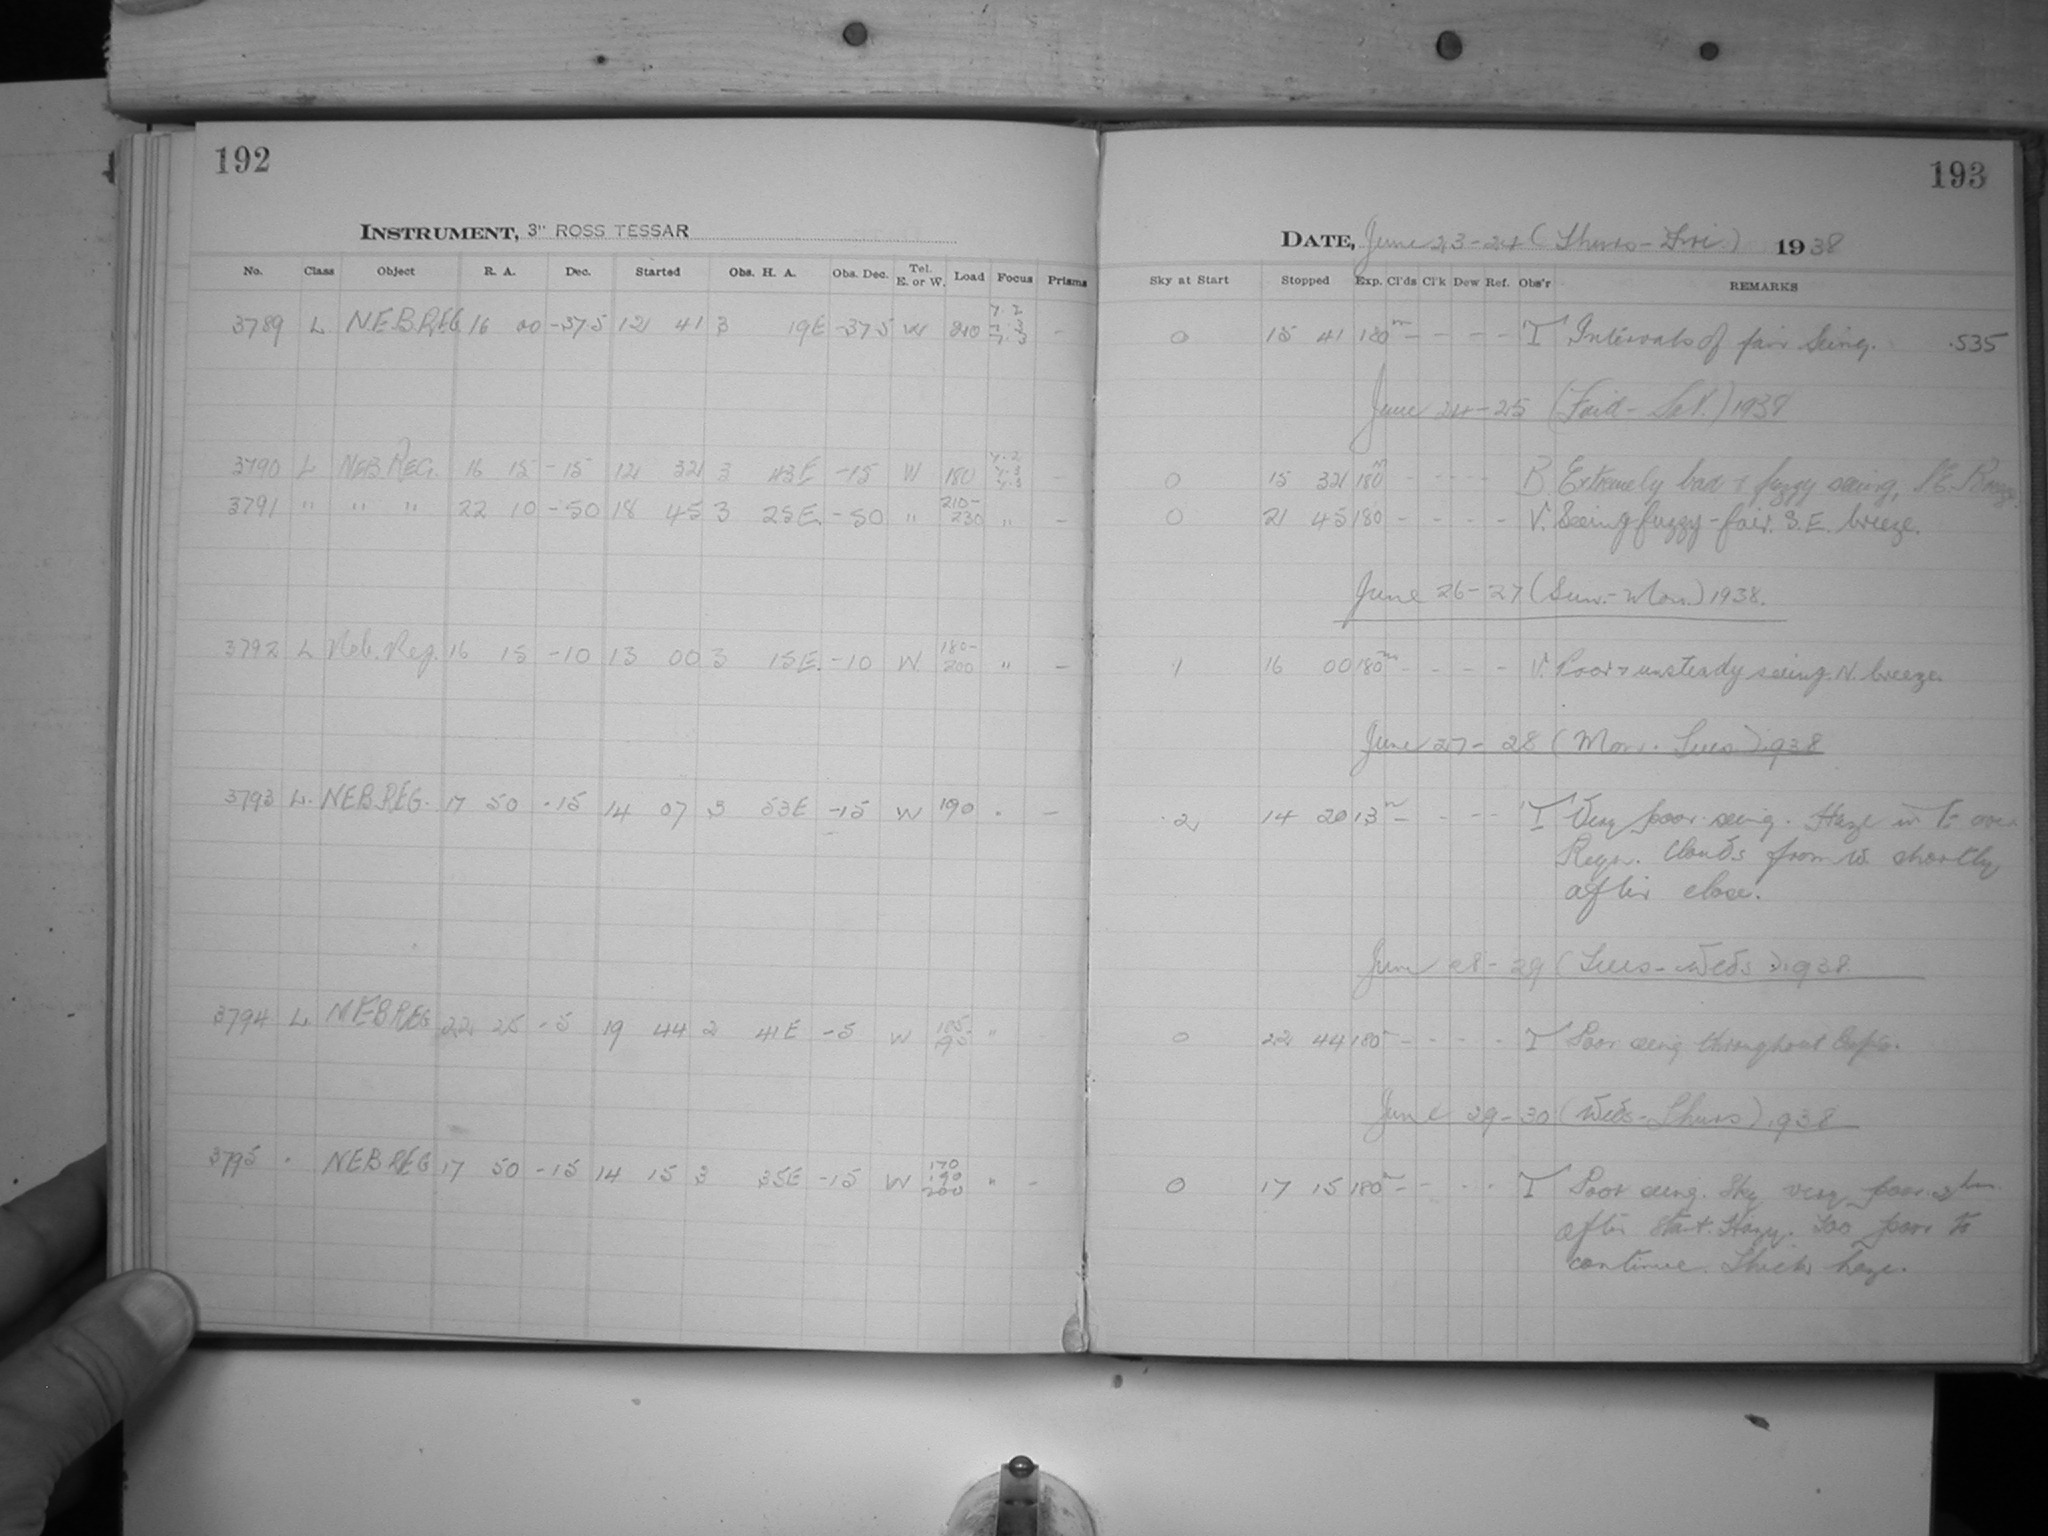 192
193
INSTRUMENT, 3" ROSS TESSAR
DATE, June 23-24 (Thurs-Fri) 1938
No. Class Object R. A. Dec. Started Obs. H. A. Obs. Dec. Tel. E. or W. Load Focus Prisms Sky at Start Stopped Exp. Cl'ds Cl'k Dew Ref. Obs'r REMARKS
3789 L NEB.REG 16 00 -37.5 12 41 3 19E -37.5 W 210 7.2 7.3 7.3 - 0 15 41 180m - - - - T Intervals of fair seing. .535
June 24-25 (Frid-Sat.) 1938
3790 L NEB.REG. 16 15 -15 12 32 3 43E -15 W 180 7.2 7.3 7.3 - 0 15 32 180m - - - - B. Extremely bad & fuzzy seeing, S.E. Breeze.
3791 " " " 22 10 -50 18 45 3 25E. -50 " 210-230 " - 0 21 45 180 - - - - V. Seeing fuzzy-fair. S.E. breeze.
June 26-27 (Sun.-Mon.) 1938.
3792 L Neb. Reg. 16 15 -10 13 00 3 15E. -10 W. 180-200 " - 1 16 00 180m - - - - V. Poor & unsteady seeing. N. breeze.
June 27-28 (Mon. Tues.) 1938
3793 L. NEB.REG. 17 50 -15 14 07 3 53E -15 W 190 " - 2 14 20 13m - - - - T Very poor seing. Haze in E over
Regn. Clouds from W shortly
after close.
June 28-29 (Tues-Weds.) 1938
3794 L. NEBREG 22 25 -5 19 44 2 41E -5 W 185-190 " 0 22 44 180m - - - - T Poor seing throughout Expo.
June 29-30 (Weds-Thurs) 1938
3795 " NEBREG 17 50 -15 14 15 3 35E -15 W 170 190 200 " - 0 17 15 180m - - - - T Poor seing. Sky very poor
after start. Hazy. Too poor to
continue. Thick haze.